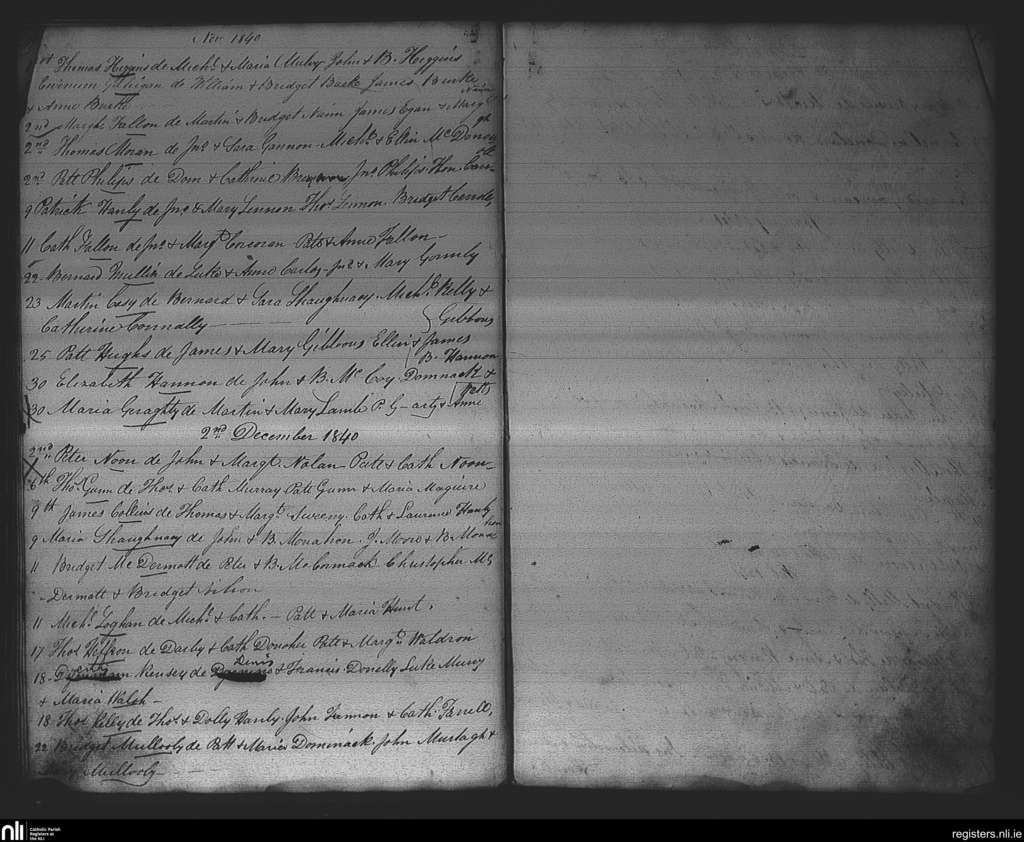 Nov 1840
Thomas Higgins de Michl & Maria Mulry John & B. Higgins
de William & Bridget Burke James Burke
& Anne Burke
2nd Margt Fallon de Martin & Bridget Naim James Egan & Margt Naim
2nd Thomas Moran de Jno & Sara Gannon Michl & Ellin Mc Donough
2nd Patt Philips de Dom & Catherine Jno Philips Hon.
9 Patrick Hanly de Jno & Mary Lennon Thos Lennon. Bridget Connolly
11 Cath Fallon de Jno & Margt Corcoran Patt & Anne Fallon
22 Bernard Mullin de Luke & Anne Carlos Jno & Mary Gormly
23 Martin Casy de Bernard & Sara Shaughnasy Michl Kelly &
Catherine Connally
25 Patt Hughs de James & Mary Gibbons Ellin & James Gibbons
30 Elizabeth Hannon de John & B. Mc Coy Domnack & B. Hannon
30 Maria Geraghty de Martin & Mary Lamb P. G-arty & Anne Patts
2nd December 1840
2nd Peter Noon de John & Margt Nolan Patt & Cath Noon
6th Thos Gunn de Thos & Cath Murray Patt Gunn & Maria Maguire
9th James Collins de Thomas & Margt Sweeny. Cath & Laurence Hanly
9 Maria Shaughnasy de John & B. Monahon J. Moore & B. Monahon
11 Bridget Mc Dermott de Peter & B. McCormack Christopher Mc
Dermott & Bridget Nilson
11 Michl Loghan de Michl & Cath. - Patt & Maria Hunt.
17 Thos Heffron de Darby & Cath Donoher Patt & Margt Waldron
18 Kensey de Denis & Francis Donelly Luke Murry
& Maria Walsh
18 Thos Kelly de Thos & Dolly Hanly John Fannon & Cath. Farrell,
22 Bridget Mullooly de Patt & Maria Dominack. John Murtagh &
Mullooly
nli
Catholic Parish
Registers at
the NLI
registers.nli.ie